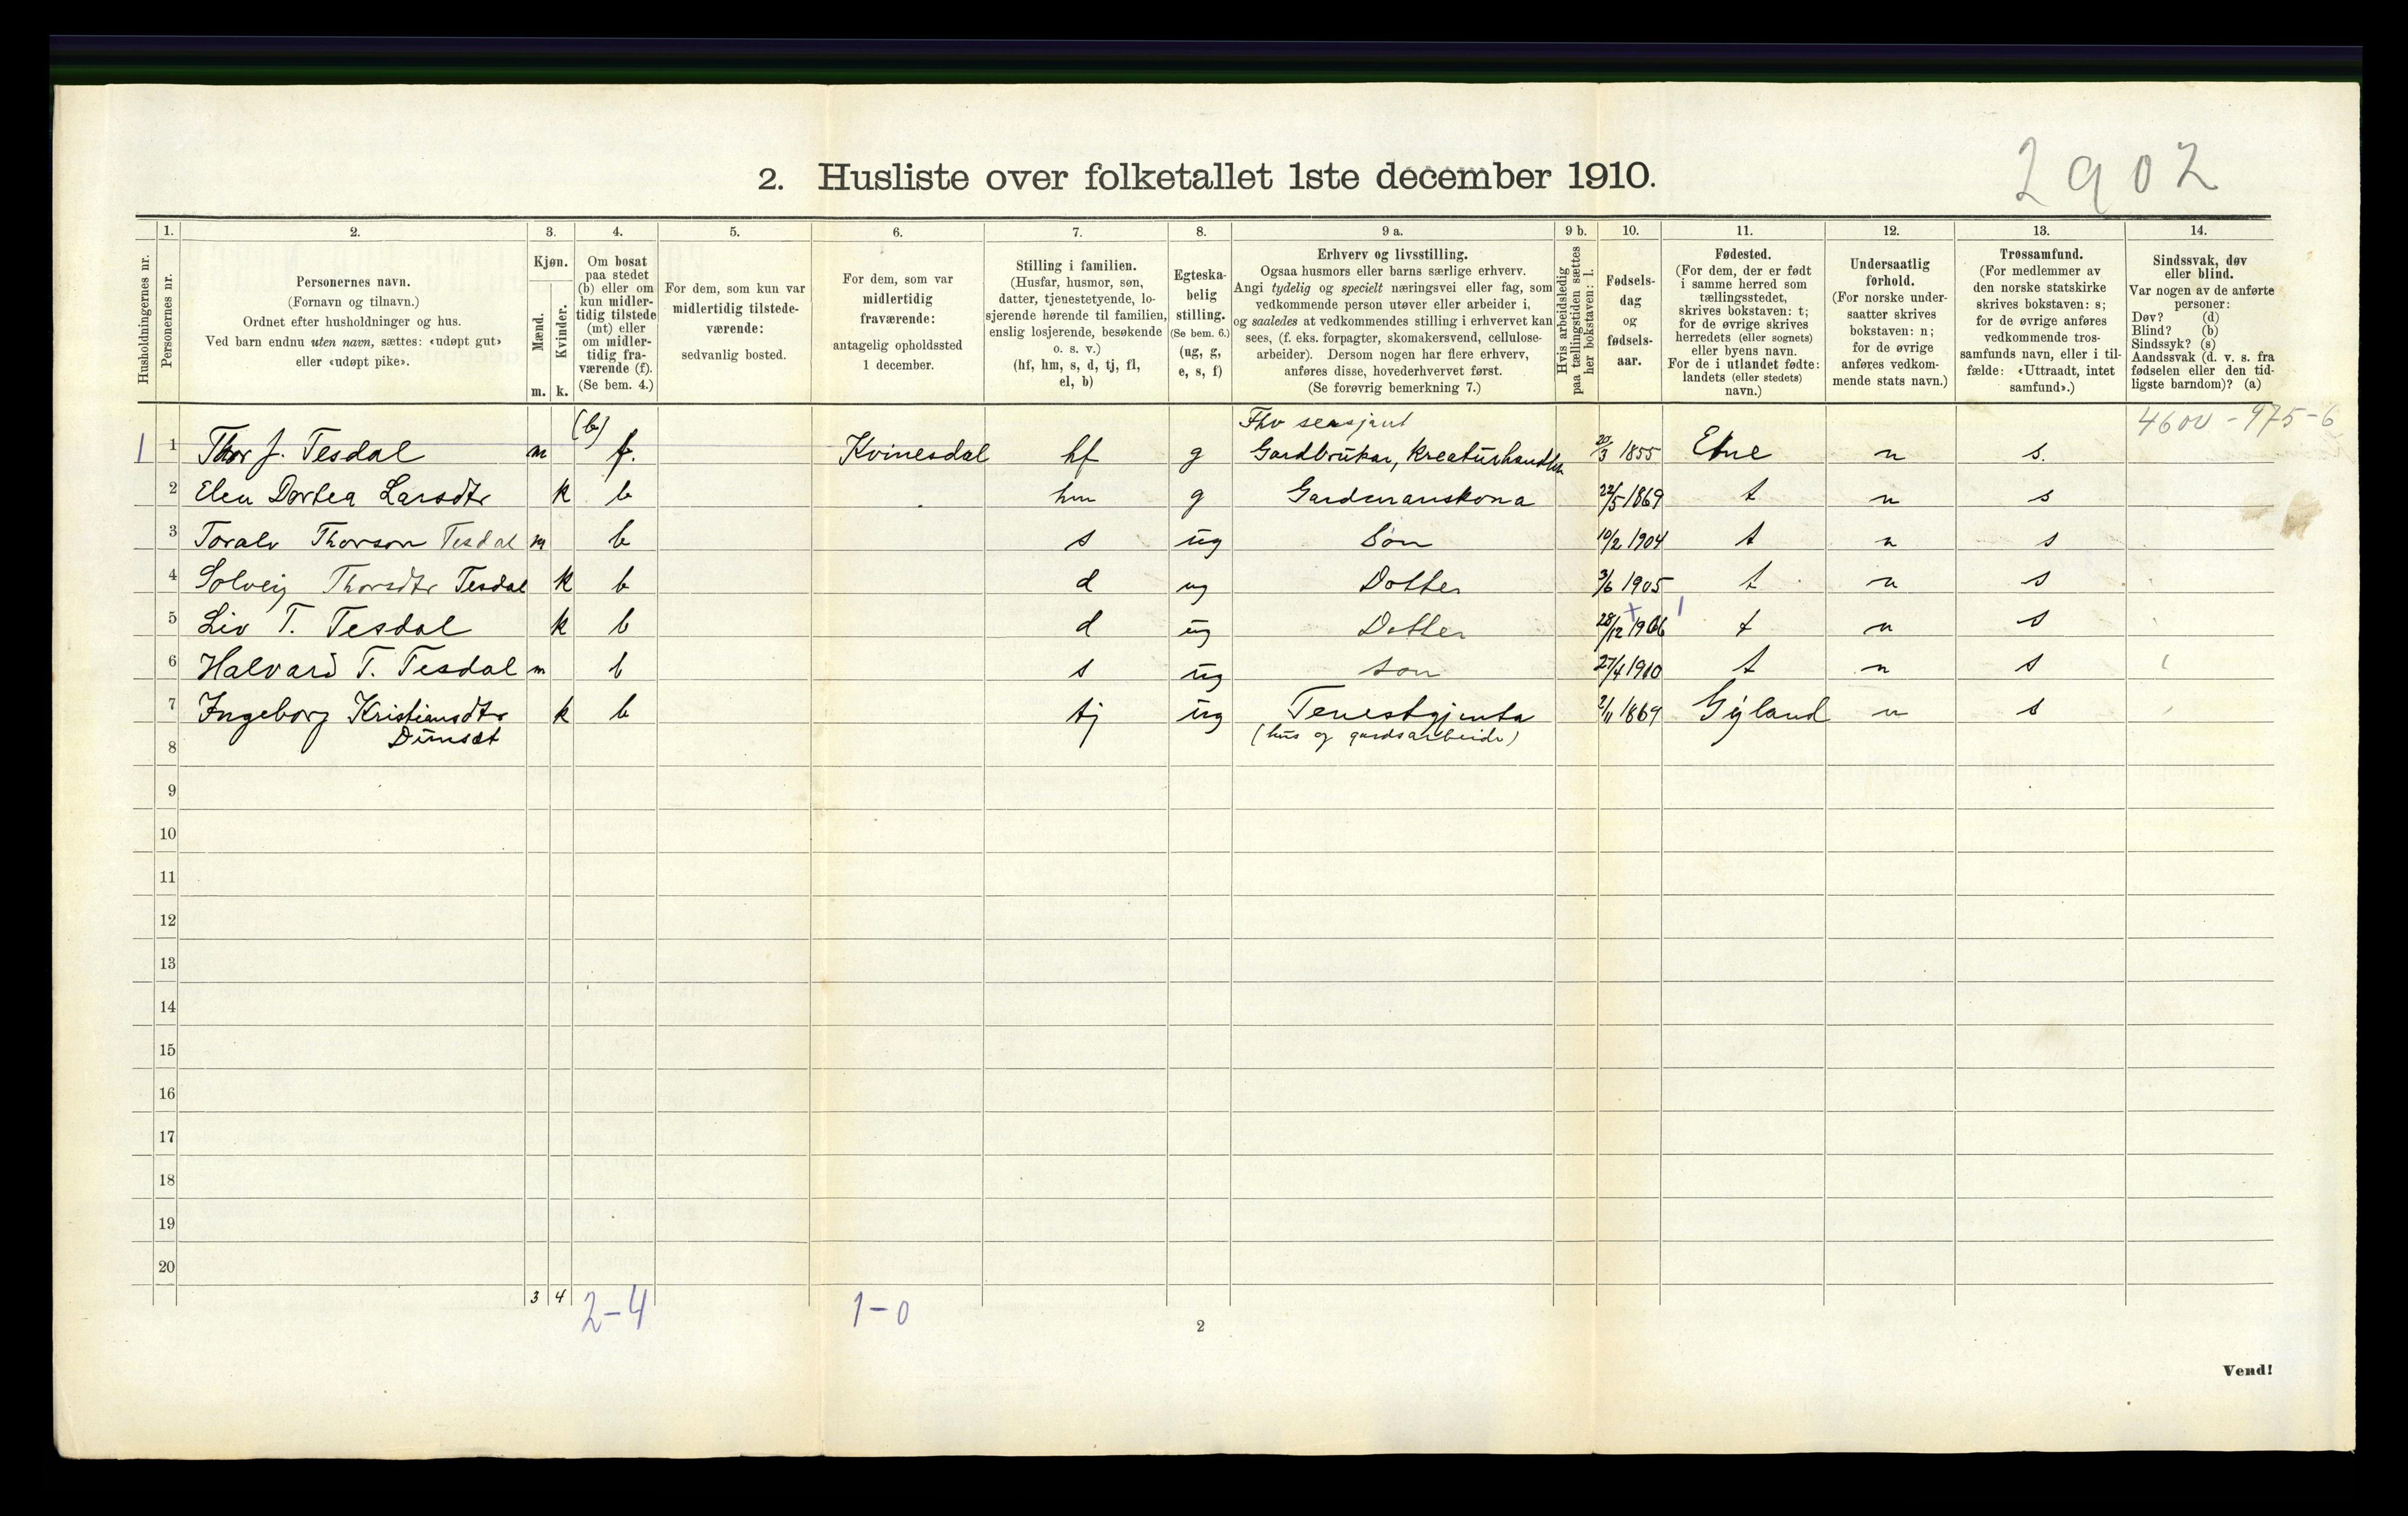 2902
2. Husliste over folketallet 1ste december 1910.
Husholdningernes nr.
1.
Personernes nr.
2.
Personernes navn.
(Fornavn og tilnavn.)
Ordnet efter husholdninger og hus.
Ved barn endnu uten navn, sættes: «udøpt gut»
eller «udøpt pike».
3.
Kjøn.
Mænd.
Kvinder.
m. k.
4.
Om bosat
paa stedet
(b) eller om
kun midler-
tidig tilstede
(mt) eller
om midler-
tidig fra-
værende (f).
(Se bem. 4.)
5.
For dem, som kun var
midlertidig tilstede-
værende:
sedvanlig bosted.
6.
For dem, som var
midlertidig
fraværende:
antagelig opholdssted
1 december.
7.
Stilling i familien.
(Husfar, husmor, søn,
datter, tjenestetyende, lo-
sjerende hørende til familien,
enslig losjerende, besøkende
o. s. v.)
(hf, hm, s, d, tj, fl,
el, b)
8.
Egteska-
belig
stilling.
(Se bem. 6.)
(ug, g,
e, s, f)
9 a.
Erhverv og livsstilling.
Ogsaa husmors eller barns særlige erhverv.
Angi tydelig og specielt næringsvei eller fag, som
vedkommende person utøver eller arbeider i,
og saaledes at vedkommendes stilling i erhvervet kan
sees, (f. eks. forpagter, skomakersvend, cellulose-
arbeider). Dersom nogen har flere erhverv,
anføres disse, hovederhvervet først.
(Se forøvrig bemerkning 7.)
9 b.
Hvis arbeidsledig
paa tællingstiden sættes
her bokstaven: l.
10.
Fødsels-
dag
og
fødsels-
aar.
11.
Fødested.
(For dem, der er født
i samme herred som
tællingsstedet,
skrives bokstaven: t;
for de øvrige skrives
herredets (eller sognets)
eller byens navn.
For de i utlandet fødte:
landets (eller stedets)
navn.)
12.
Undersaatlig
forhold.
(For norske under-
saatter skrives
bokstaven: n;
for de øvrige
anføres vedkom-
mende stats navn.)
13.
Trossamfund.
(For medlemmer av
den norske statskirke
skrives bokstaven: s;
for de øvrige anføres
vedkommende tros-
samfunds navn, eller i til-
fælde: «Uttraadt, intet
samfund».)
14.
Sindssvak, døv
eller blind.
Var nogen av de anførte
personer:
Døv? (d)
Blind? (b)
Sindssyk? (s)
Aandssvak (d. v. s. fra
fødselen eller den tid-
ligste barndom)? (a)
(b) Fhv sersjant 4600-975-6
1 1 Thor J. Tesdal m f. Kvinesdal hf g Gardbrukar, Kreaturhandlar 20/3 1855 Etne n s.
2 Elen Dortea Larsdtr k b hm g Gardmanskona 22/5 1869 t n s
3 Toralv Thorson Tesdal m b s ug Søn 10/2 1904 t n s
4 Solveig Thorsdtr Tesdal k b d ug Dotter 3/6 1905 t n s
5 Liv T. Tesdal k b d ug Dotter 28/12 1906 t n s
6 Halvard T. Tesdal m b s ug son 27/4 1910 t n s
7 Ingeborg Kristiansdtr k b tj ug Tenestgjenta 2/11 1869 Gyland n s
8 Dunsæt (hus og gardsarbeide)
9
10
11
12
13
14
15
16
17
18
19
20
3 4 2-4 1-0
2
Vend!